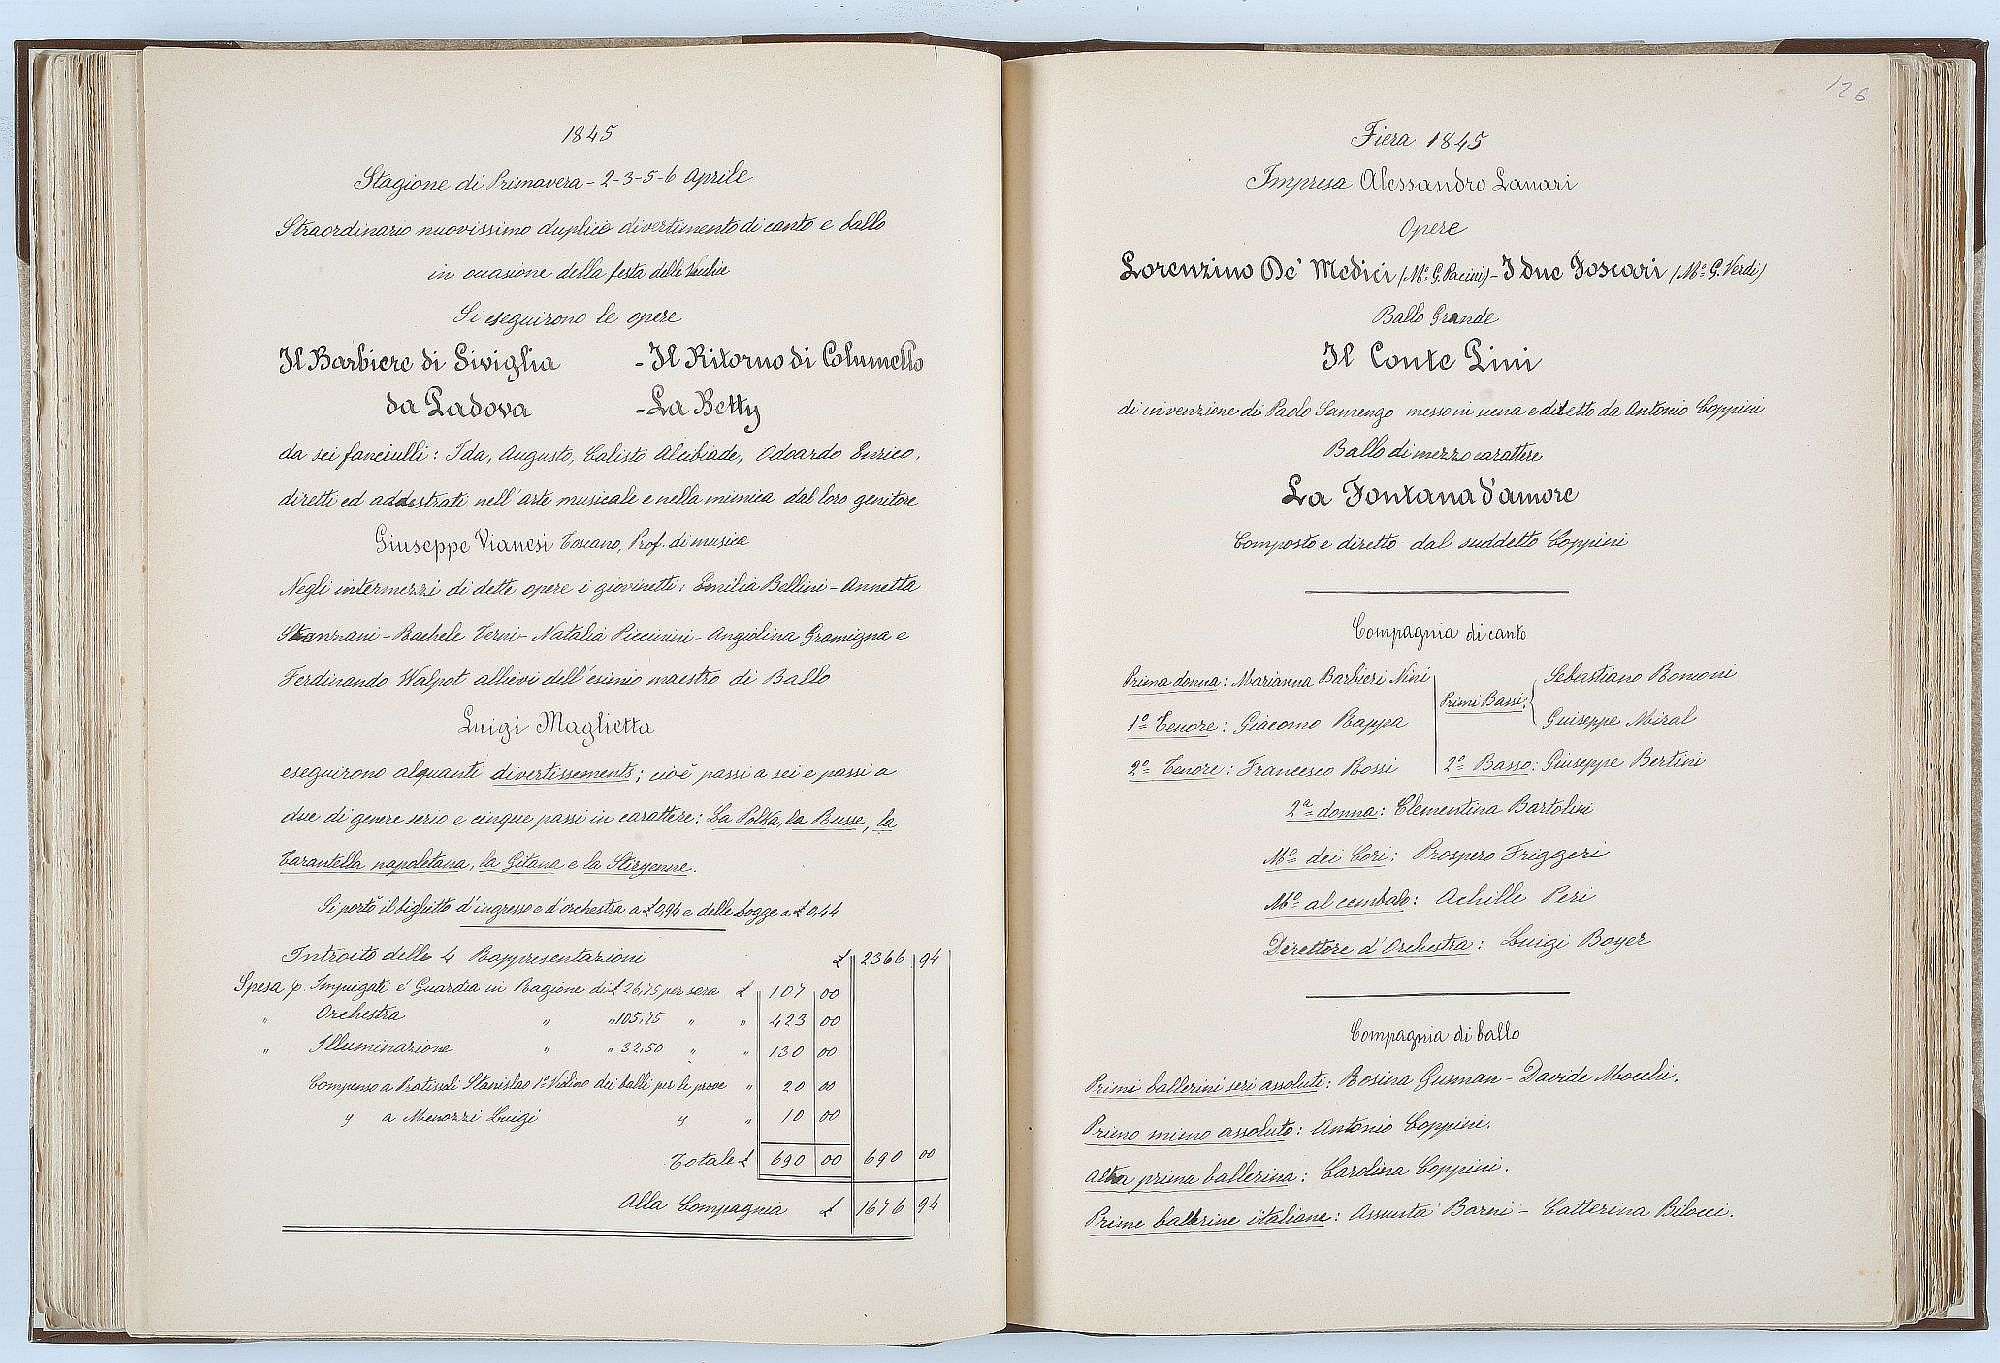 1845
Stagione di Primavera - 2-3-5-6 Aprile
Straordinario nuovissimo duplice divertimento di canto e ballo
in occasione della festa delle Vecchie
Si eseguirono le opere
Il Barbiere di Siviglia - Il Ritorno di Columello
da Padova - La Betty
da sei fanciulli: Ida, Augusto, Calisto Alcibiade, Odoardo Enrico,
diretti ed addestrati nell'arte musicale e nella mimica dal loro genitore
Giuseppe Vianesi Toscano, Prof. di musica
Negli intermezzi di dette opere i giovinetti: Emilia Bellini - Annetta
Stannani - Rachele Terni - Natalia Piccinini - Angiolina Gramigna e
Ferdinando Walpot allievi dell'esimio maestro di Ballo
Luigi Maglietta
eseguirono alquanti divertissements; cioè passi a sei e passi a
due di genere serio e cinque passi in carattere: La Polka, la Russe, la
Tarantella napoletana, la Gitana e la Stiryenne.
Si portò il biglietto d'ingresso e d'orchestra a £ 0,94 e delle Logge a £ 0,44
Introito delle 4 Rappresentazioni £ 2366 94
Spesa p. Impiegati e Guardia in Ragione di £ 26,75 per sera £ 107 00
" Orchestra " " 105,75 " " 423 00
" Illuminazione " " 32,50 " " 130 00
Compenso a Pratissoli Stanislao 1º Violino dei balli per le prove " 20 00
" a Menozzi Luigi " " 10 00
Totale £ 690 00 690 00
Alla Compagnia £ 1676 94
126
Fiera 1845
Impresa Alessandro Lanari
Opere
Lorenzino De' Medici (Mº G. Pacini) - I due Foscari (Mº G. Verdi)
Ballo Grande
Il Conte Pini
di invenzione di Paolo Samengo messo in scena e diretto da Antonio Coppini
Ballo di mezzo carattere
La Fontana d'amore
Composto e diretto dal suddetto Coppini
Compagnia di canto
Prima donna: Marianna Barbieri Nini
1º Tenore: Giacomo Rappa
2º Tenore: Francesco Rossi
Primi Bassi: Sebastiano Ronconi
Guiseppe Miral
2º Basso: Giuseppe Bertini
2ª donna: Clementina Bartolini
Mº dei Cori: Prospero Friggeri
Mº al cembalo: Achille Peri
Direttore d'Orchestra: Luigi Boyer
Compagnia di ballo
Primi ballerini seri assoluti: Rosina Gusman - Davide Mocchi.
Primo mimo assoluto: Antonio Coppini.
Altra prima ballerina: Carolina Coppini.
Prime ballerine italiane: Assunta Barni - Catterina Bilocci.